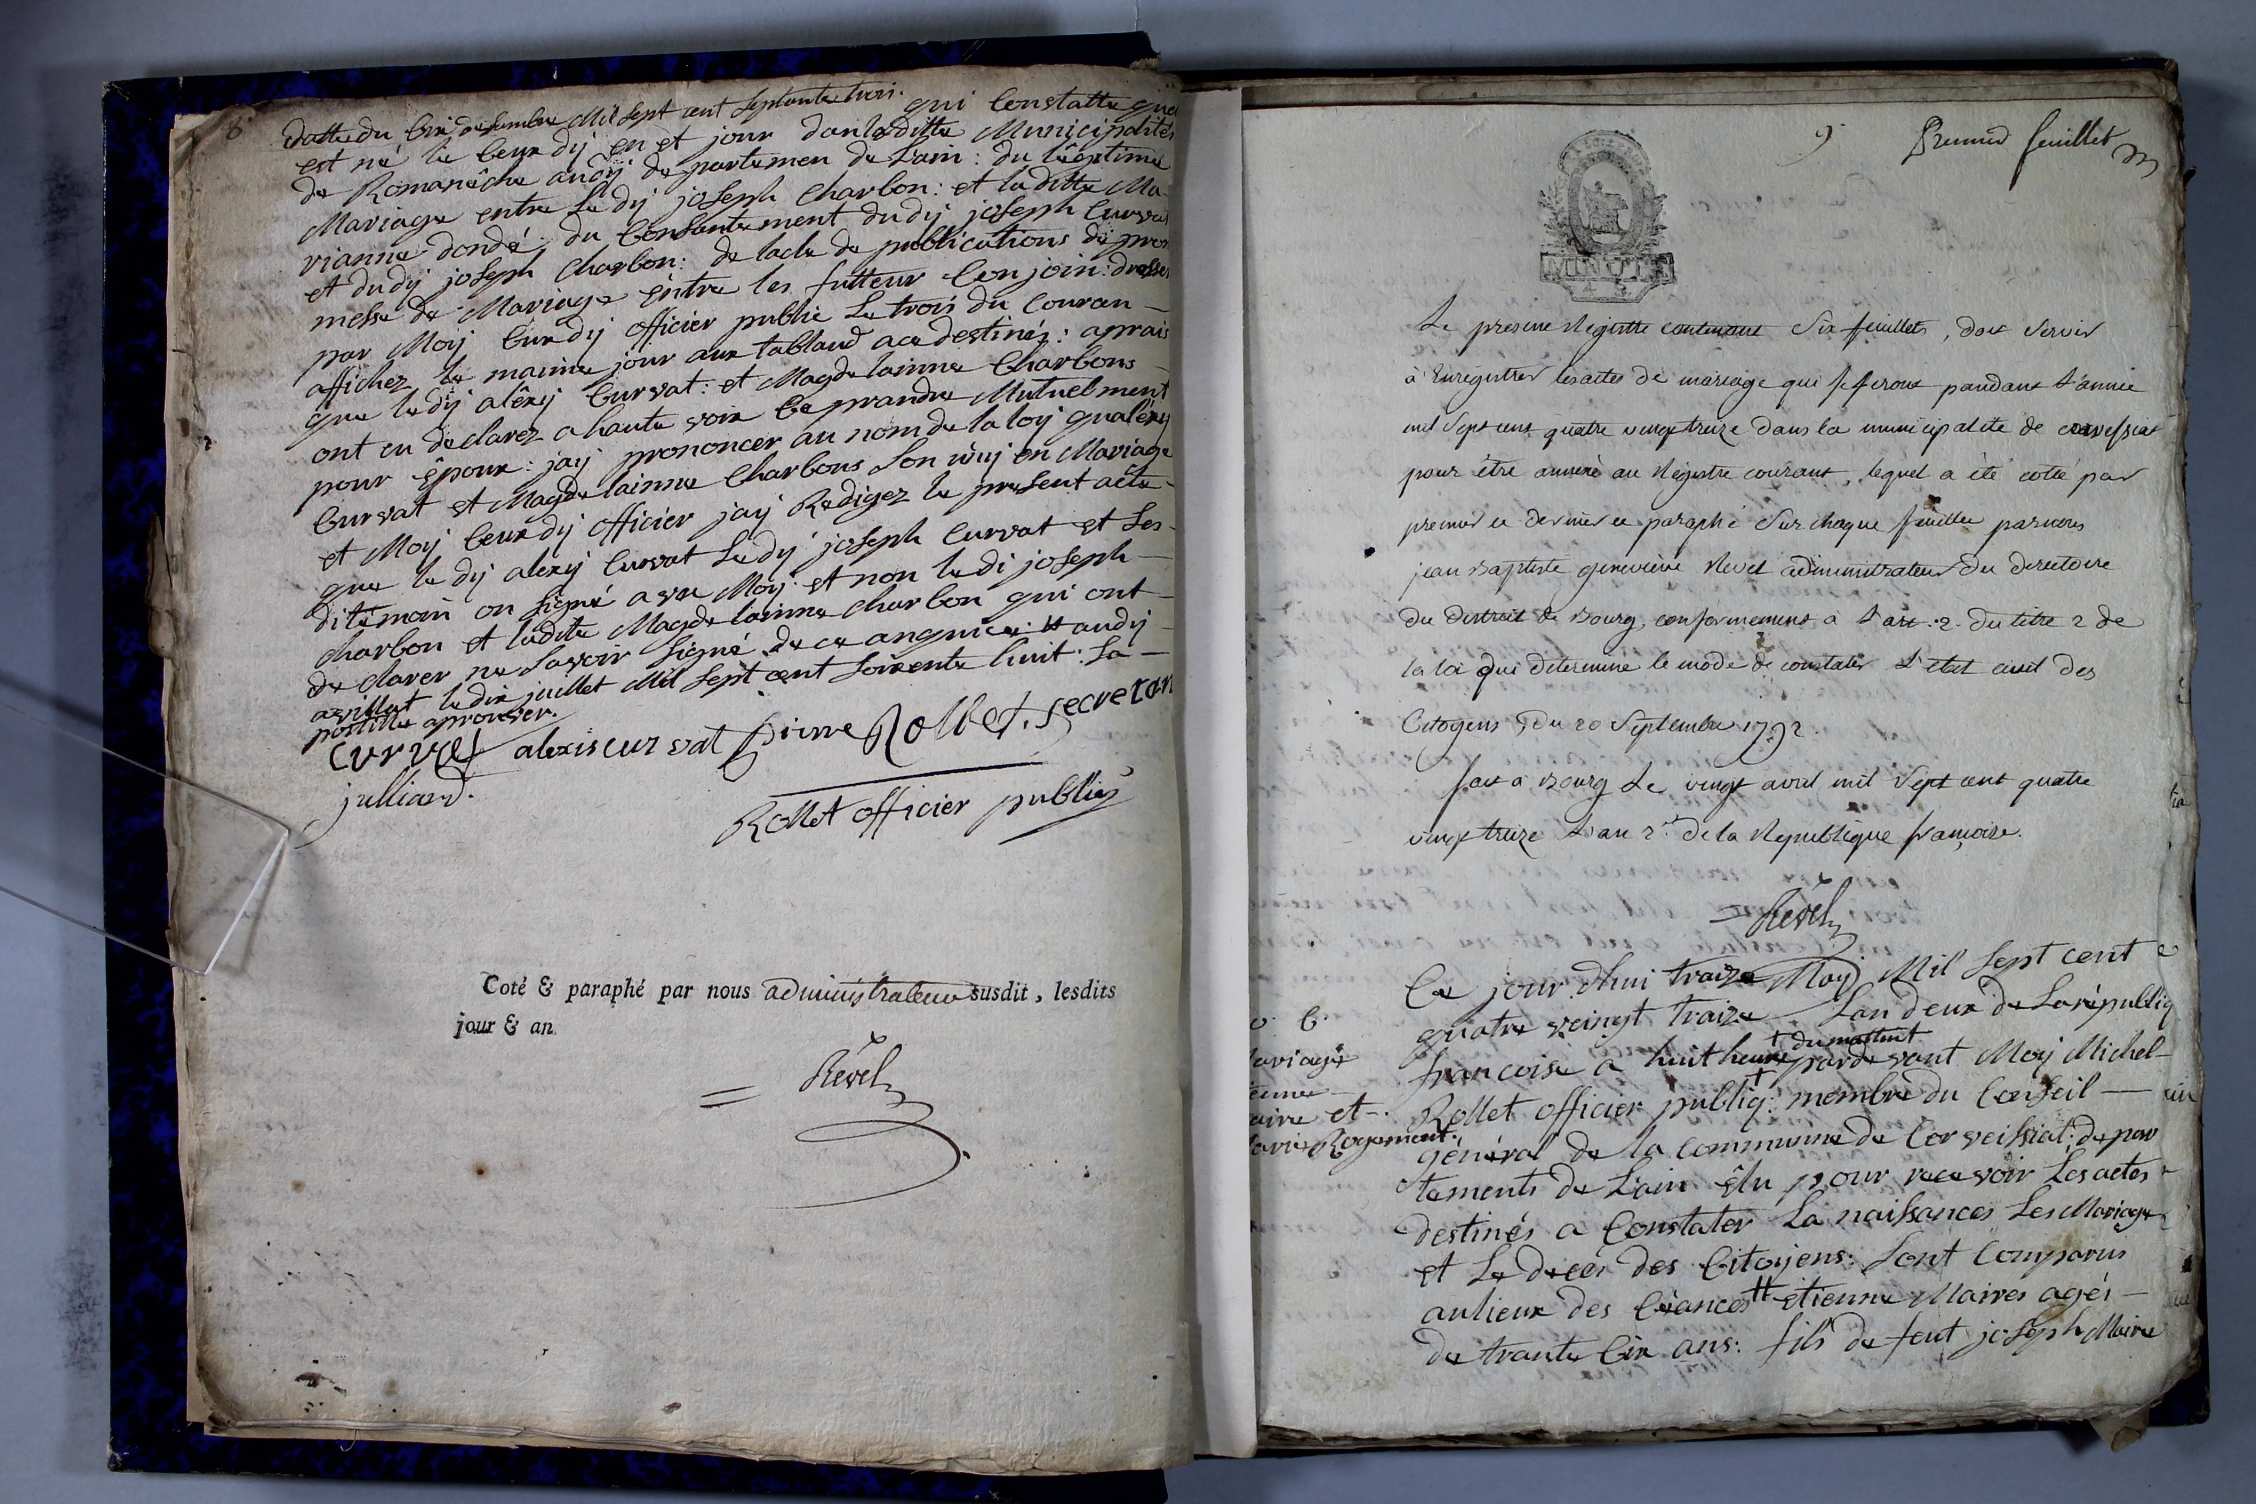 8.
datte du six desembre Mil sept cent septante trois.
est né le ceux dy en et jour dans laditte Municipalites
de Romanêche audij departemen de Lain: du légitime
Mariage entre Le dij joseph Charbon: et laditte Ma-
rianne dondé, du Consantement dudij joseph Curvat
et dudij joseph Charbon: de lacte de publications de pro
messe de Mariage entre les futteur Conjoin: dresser
par Moij Cusdij officier public Le trois du Couran —
affichez le mainme jour aux tablaud ace destinéz: aprais
que le dij aléxij Curvat: et Magdelainne Charbons —
ont eu declarez a haute voix Ce prandre Mutuelment
pour Êpoux: jaij prononcer au nom de la loij qualéxij
Curvat et Magdelainne Charbons Son unij en Mariage
et Moij Ceuxdij officier jaij Redigez le present acte —
que le dij alexij Curvat Le dij joseph Curvat et Ses —
ditémoin on Signé avec Moij et non le di joseph —
charbon et ladite Magdelainne charbon qui ont —
declarer ne Savoir Signé de ce anquis:
le dix juillet Mil Sept cent Soixente huit. La —
postille aprouver.
Curvat alexis curvat pierre Rollet, secretar
julliard.
Rollet officier publiq
Coté & paraphé par nous administrateur susdit, lesdits
jour & an.
Revel
9. Premier feuillet
MINUTE
Le présent Registre contenant Six feuillets, doit servir
à Enrégistrer les actes de mariage qui se feront pandant L'année
mil Sept cent quatre vingt treize dans la municipalité de corvessiat
pour être annexé au Régistre courant, lequel a été cotté par
premier et dernier et paraphé Sur chaque feuillet par nous
jean Baptiste genevieve Revel administrateur du directoire
du district de Bourg, conformement à L'art. 2. du titre 2 de
la loi qui determine le mode de constater L'état civil des
Citoyens, du 20 Septembre 1792.
fait à Bourg Le vingt avril mil Sept cent quatre
vingt treize L'an 2e. de la République françoise.
Revel
Ce jour d'hui traize Maij Mil Sept cent
quatre veingt traize Lan deux de La républiq
francoise a huit heure † du mattint pardevant Moij Michel —
Rollet officier publiq: membre du Conseil —
général de la commune de Corveissiat: depar
tements de L'ain êlu pour recevoir Les actes
destinés a Constater La naissances Les Mariage
et Le decés des Citoijens: Sont Comparus
aulieux des Céances étienne Maires agés —
de trante Six ans: fils de feut joseph Maire
6.
ariage
ienne —
aire et —
arie Rogement.